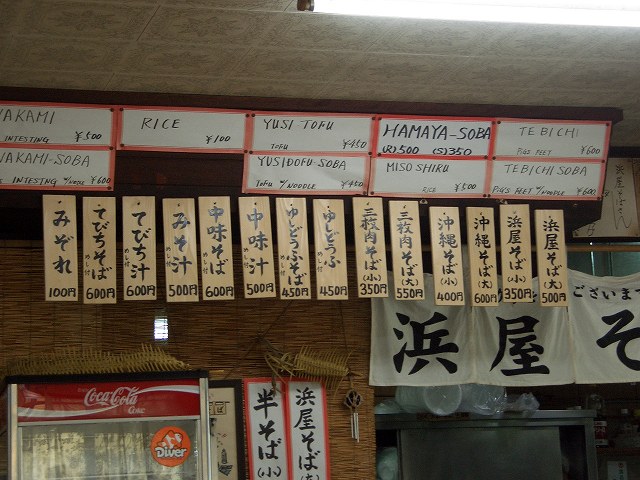 WAKAMI
INTESTING ¥500
RICE
¥100
YUSI-TOFU
TOFU ¥450
HAMAYA-SOBA
(R)500 (S)350
TEBICHI
PIG'S FEET ¥600
NAKAMI-SOBA
INTESTING W/NOODLE ¥600
YUSIDOFU-SOBA
TOFU W/NOODLE ¥450
MISOSHIRU
RICE ¥500
TEBICHI SOBA
PIG'S FEET W/NOODLE ¥600
みぞれ 100円
てびちそば めし付 600円
てびち汁 めし付 600円
みそ汁 めし付 500円
中味そば めし付 600円
中味汁 めし付 500円
ゆしどうふそば 450円
ゆしどうふ めし付 450円
三枚肉そば(小) 350円
三枚肉そば(大) 550円
沖縄そば(小) 400円
沖縄そば(大) 600円
浜屋そば(小) 350円
浜屋そば(大) 500円
ございます
浜屋そ
Coca-Cola
Diver
半そば(小)
浜屋そば(大)